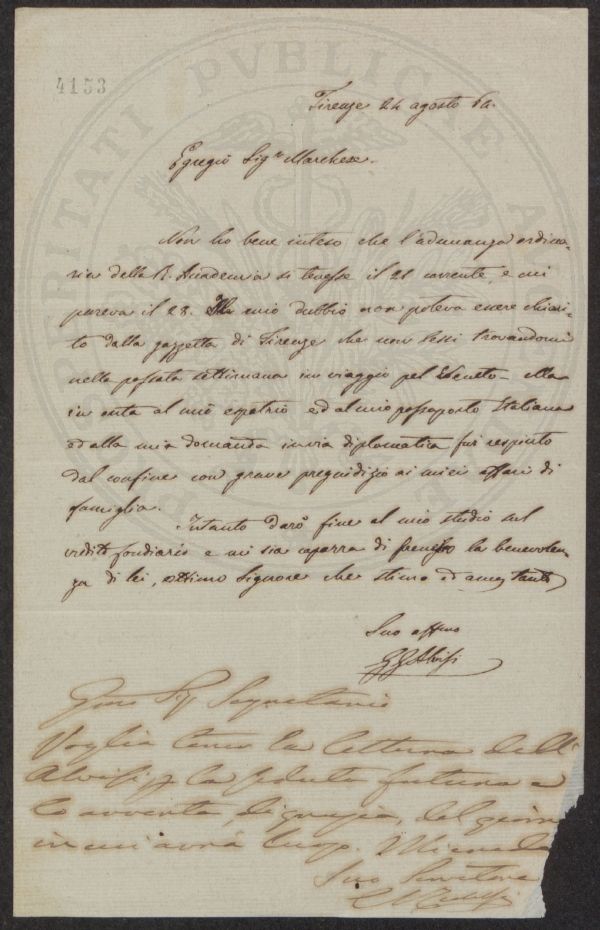 4153
Firenze 24 agosto 62.
Egregio Sigr Marchese.
Non ho bene inteso che l'adunanza ordina-
ria della R. Accademia si tenesse il 21 corrente, e mi
pareva il 28. Il mio dubbio non poteva essere chiari-
to dalla gazzetta di Firenze che non lessi trovandomi
nella passata settimana in viaggio pel Veneto – Ma
in onta al mio espatrio ed al mio passaporto Italiano
ed alla mia domanda in via diplomatica fui respinto
dal confine con grave pregiudizio ai miei affari di
famiglia.
Intanto darò fine al mio studio sul
credito fondiario e mi sia caparra di la benevolen-
za di lei, ottimo Signore che stimo ed amo tanto
Suo affmo
GG Alvisi
Sigr Segretario
Voglia tener la lettura dell'
Alvisi p la seduta futura e
lo avverta, di grazia, del giorno
in cui avrà luogo. Mi creda
Suo Servitore
Ridolfi